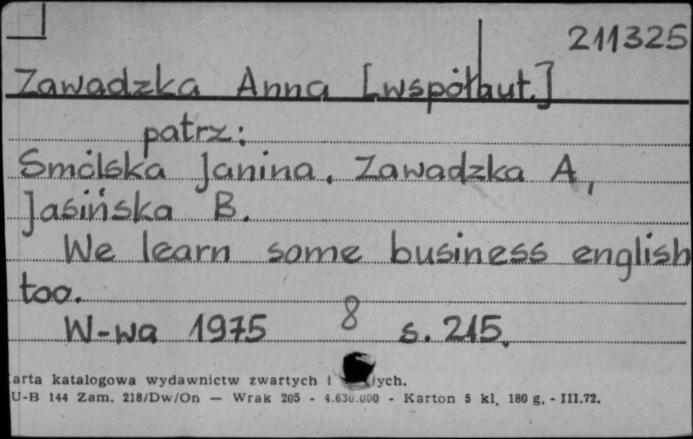 211325
Zawadzka Anna [współaut.]
patrz:
Smólska Janina, Zawadzka A,
Jasińska B.
We learn some business english
too.
W-wa 1975 8 s. 215.
arta katalogowa wydawnictw zwartych i
U-B 144 Zam. 218/Dw/On — Wrak 205 - 4.630.000 - Karton 5 kl. 180 g. - III.72.